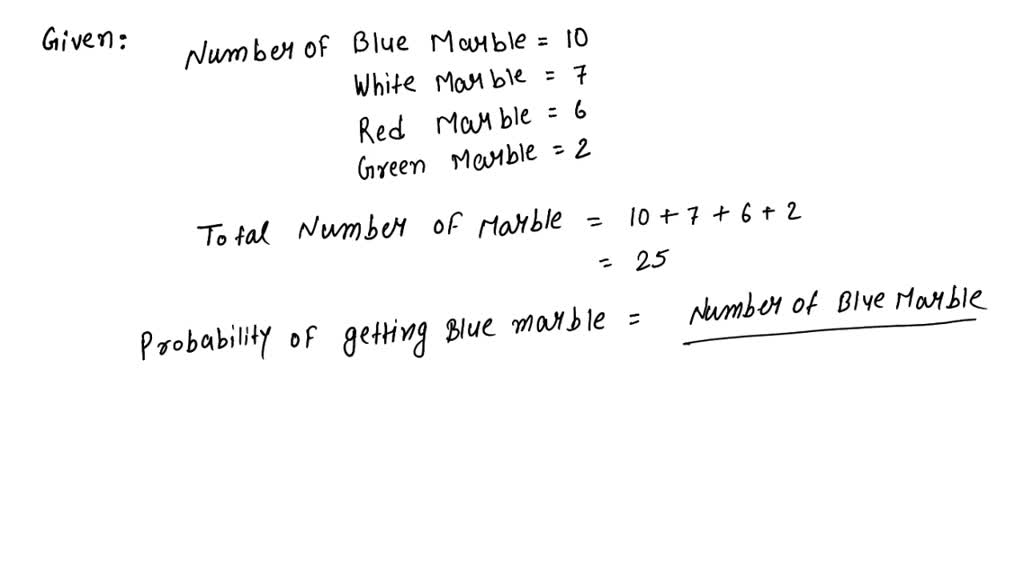 Given: Number of Blue Marble = 10
White Marble = 7
Red Marble = 6
Green Marble = 2
Total Number of Marble = 10 + 7 + 6 + 2
= 25
Probability of getting Blue marble = Number of Blue Marble